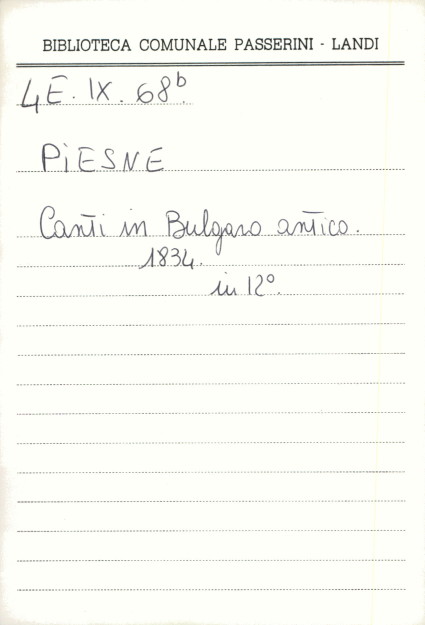 BIBLIOTECA COMUNALE PASSERINI - LANDI
4E. IX. 68b
PIESNE
Canti in Bulgaro antico.
1834.
in 12°.